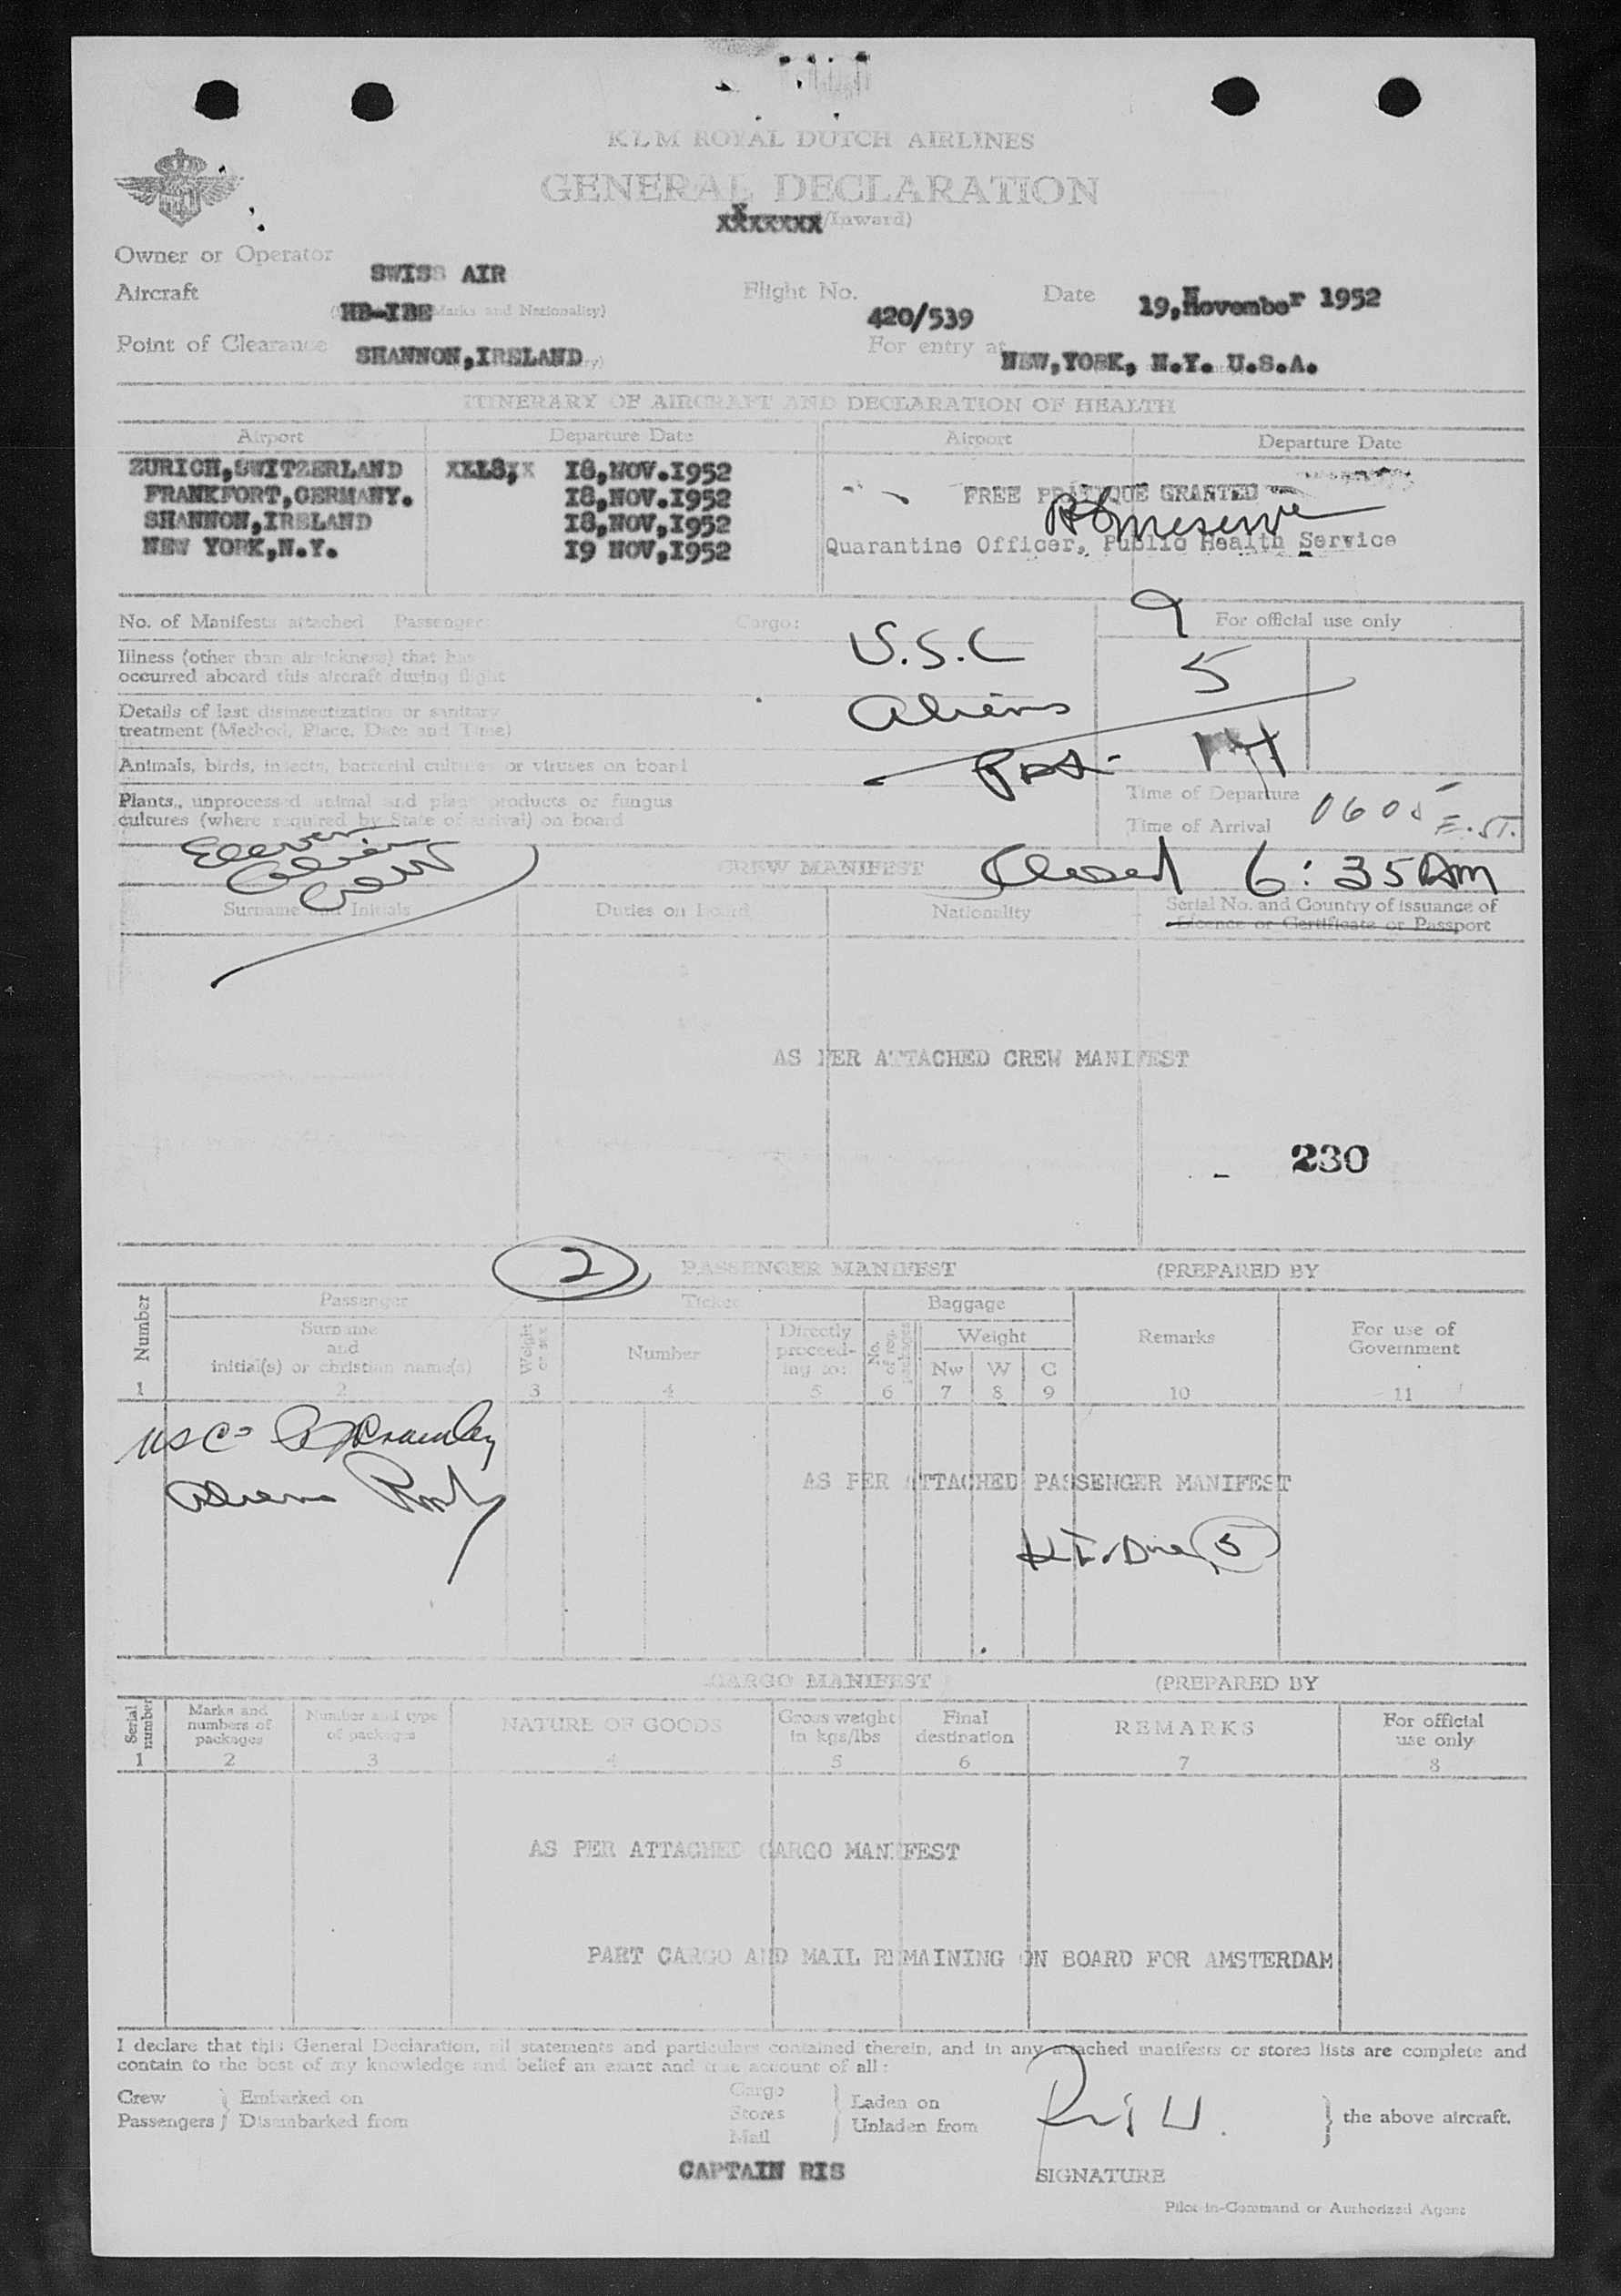 KLM ROYAL DUTCH AIRLINES
GENERAL DECLARATION
XXXXXXX/Inward)
Owner or Operator SWISS AIR
Aircraft HB-IBE Marks and Nationality) Flight No. 420/539 Date 19,November 1952
Point of Clearance SHANNON,IRELAND For entry at NEW,YORK, N.Y. U.S.A.
ITINERARY OF AIRCRAFT AND DECLARATION OF HEALTH
Airport Departure Date Airport Departure Date
ZURICH,SWITZERLAND 18,NOV.1952
FRANKFORT,GERMANY. 18,NOV.1952 FREE PRATYQUE GRANTED
SHANNON,IRELAND 18,NOV,1952
NEW YORK,N.Y. 19 NOV,1952 Quarantine Officer, Public Health Service
No. of Manifests attached Passenger: Cargo: U.S.C 9 For official use only
Illness (other than airsickness) that has
occurred aboard this aircraft during flight 5
Details of last disinsectization or sanitary Aliens
treatment (Method, Place, Date and Time)
Animals, birds, insects, bacterial cultures or viruses on board 14
Plants, unprocessed animal and plant products or fungus Time of Departure
cultures (where required by State of arrival) on board Time of Arrival 0605 E.S.T.
Eleven
Alien
Crew
CREW MANIFEST Closed 6:35 Am
Surname and Initials Duties on board Nationality Serial No. and Country of issuance of
Licence or Certificate or Passport
AS PER ATTACHED CREW MANIFEST
230
2 PASSENGER MANIFEST (PREPARED BY
Number Passenger Ticket Baggage
Surname
and
initial(s) or christian name(s) Weight or sex Number Directly proceeding to: No. of reg. packages Weight Nw W C Remarks For use of Government
1 2 3 4 5 6 7 8 9 10 11
USC
Aliens
AS PER ATTACHED PASSENGER MANIFEST
5
CARGO MANIFEST (PREPARED BY
Serial number Marks and numbers of packages Number and type of packages NATURE OF GOODS Gross weight in kgs/lbs Final destination REMARKS For official use only
1 2 3 4 5 6 7 8
AS PER ATTACHED CARGO MANIFEST
PART CARGO AND MAIL REMAINING ON BOARD FOR AMSTERDAM
I declare that this General Declaration, all statements and particulars contained therein, and in any attached manifests or stores lists are complete and
contain to the best of my knowledge and belief an exact and true account of all:
Crew Embarked on Cargo Laden on
Passengers Disembarked from Stores Unladen from the above aircraft.
Mail
CAPTAIN RIS SIGNATURE
Pilot-in-Command or Authorized Agent